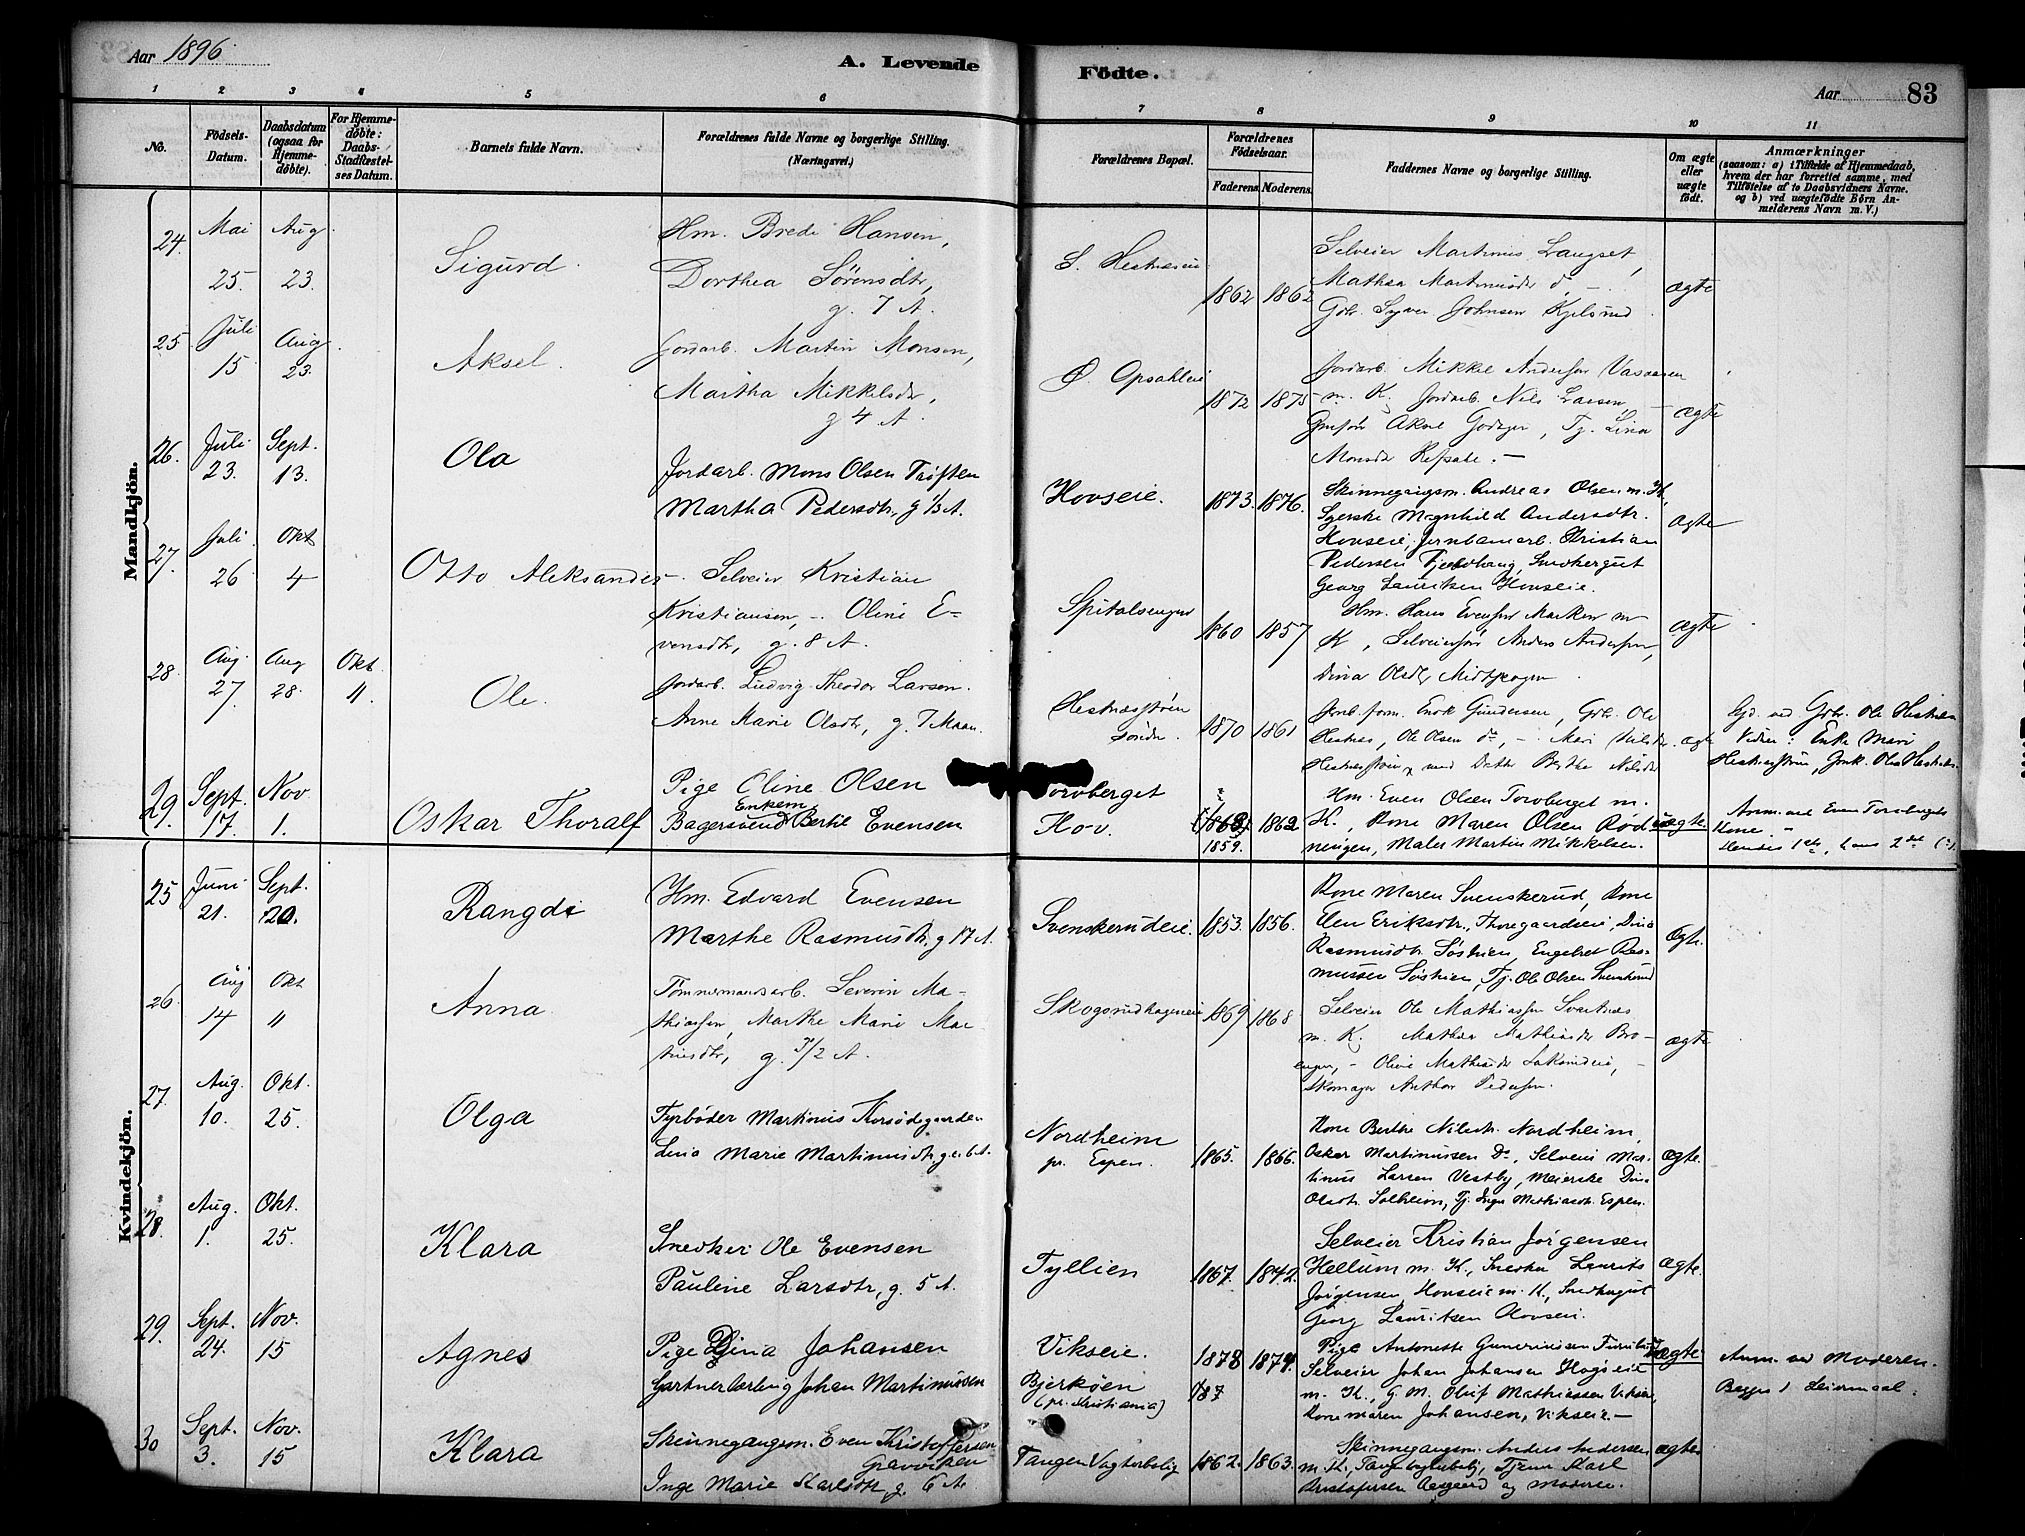 Aar 1896
A. Levende
Fødte.
Aar 83
1 2 3 4 5 6 7 8 9 10 11
No.
Fødsels-Datum.
Daabsdatum (ogsaa for Hjemme-døbte).
For Hjemme-døbte: Daabs-Stadfæstel-ses Datum.
Barnets fulde Navn.
Forældrenes fulde Navne og borgerlige Stilling. (Næringsvei.)
Forældrenes Bopæl.
Forældrenes Fødselsaar.
Faderens. Moderens.
Faddernes Navne og borgerlige Stilling.
Om ægte eller uægte født.
Anmærkninger
(saasom: a) i Tilfælde af Hjemmedaab, hvem der har forrettet samme, med Tilføielse af to Daabsvidners Navne, og b) ved uægtefødte Børn An-melderens Navn m. V.)
Mandkjøn.
24 Mai 25. Aug 23. Sigurd.
Hm. Brede Hansen,
Dorthea Sørensdtr,
g. 7 A.
S. Hestnæseie 1862 1862
Selveier Martinus Langset,
Mathea Martinusdtr do –
Gdbr. Syver Johnsen Kjelsrud.
ægte
25 Juli 15 Aug 23. Aksel.
Jordarb. Martin Monsen,
Martha Mikkelsdtr,
g 4 A.
Ø. Opsahleie 1872 1875
Jordarb. Mikkel Andersen Vasaasen
m. K. Jordarb. Nils Larsen
Aksel Godager, Tj. Lina
Monsdtr Refsale. –
ægte
26. Juli 23. Sept. 13. Ola
Jordarb. Mons Olsen Trøften
Martha Pedersdtr, g ½ A.
Hovseie. 1873. 1876.
Skinnegangsm. Andreas Olsen m. K.,
Syerske Magnhild Andersdtr.
Hovseie, Jernbanearb. Christian
Pedersen Snedkergut
Georg Lauritsen Hovseie.
ægte
27. Juli 26 Okt 4 Otto Aleksander
Selveier Kristian
Kristiansen, – Oline E-
vensdtr, g. 8 A.
Spitalsengen 1860 1857
Hm. Hans Evensen Marken m
K, Selveiersøn Anders Andersen,
Dina Olsdtr Midtskogen
ægte
28. Aug. 27. Aug 28. Okt. 11. Ole.
Jordarb. Ludvig Theodor Larsen.
Anne Marie Olsdtr, g. 7 Maan.
Hestnæsstøen søndre. 1870 1861
Jernb. form. Enok Gundersen, Gdbr. Ole
Hestnæs, Ole Olsen do, – Mari Nilsdtr
Hestnæsstøen, med Datter Berthe Nilsdtr
ægte
Hjd. ved Gdbr. Ole Hestnæs
Vidner: Enke Mari
Hestnæsstøen, Ole Hestnæs.
29. Sept. 17. Nov. 1. Oskar Thoralf
Pige Oline Olsen
Enkem.
Bagersvend Bertil Evensen
Torvberget
Hov. 1868 1859. 1862
Hm. Even Olsen Torvberget m.
K., Kone Maren Olsen Rød
ningen, Maler Martin Mikkelsen.
uægte.
Anm. ved Even Torvbergets
Kone. –
Hendes 1ste, hans 2det (?).
Kvindekjøn.
25 Juni 21. Sept. 20. Rangdi
Hm. Edvard Evensen
Marthe Rasmusdtr, g 17 A.
Svenskerudeie. 1853. 1856.
Kone Maren Svenskerud, Kone
Elen Eriksdtr., Thoregaardseie, Dina
Rasmusdtr Søstuen, Engebret Ras-
mussen Søstuen, Tj. Ole Olsen Svenskerud
Ægte.
26. Aug 14 Okt 11 Anna.
Tømmermandsarb. Severin Ma-
thiassen, Marthe Marie Mar-
tinsdtr, g. 3½ A.
Skogsrudhageneie 1869 1868
Selveier Ole Mathiassen Svartnæs
m. K. Mathea Mathiasdtr Bro-
engen, – Oline Mathiasdtr
Skomager Anthon Pedersen.
ægte
27. Aug. 10. Okt. 25. Olga
Fyrbøder Martinus Korsødegaarden
Lina Marie Martinusdtr, g. 6 A.
Nordheim
pr. Espen. 1865. 1866.
Kone Berthe Nilsdtr. Nordheim,
Oskar Martinussen Do, Selveier Mar-
tinus Larsen Vestby, Meierske Dina
Olsdtr. Solheim, Tj. Inga Mathiasdtr. Espen.
ægte.
28. Aug. 1. Okt. 25. Klara
Snedker Ole Evensen
Pauline Larsdtr, g. 5 A.
Tyllien 1867. 1872.
Selveier Kristian Jørgensen
Hellum m. K., Snedker Laurits
Jørgensen, Hovseie m. K., Snedkergut
Georg Lauritsen Hovseie.
ægte.
29. Sept. 24. Nov. 15 Agnes
Pige Dina Johansen
Gartnerlærling Johan Martinussen
Vikseie.
Bjerkøen
(pr. Kristiania) 1878 187 1874.
Pige Antonette Gunerinssen
Selveier Johan Johansen Hogseie
m. K., g. M. Oluf Mathiassen Vikseie,
Kone Maren Johansen, Vikseie. –
uægte
Anm. ved Moderen.
Begges 1 Leiermaal.
30 Sept. 3. Nov. 15 Klara
Skinnegangsm. Even Kristoffersen
Inge Marie Karlsdtr, g. 6 A.
Tangen Vogterbolig 1862. 1863.
Skinnegangsm. Anders Andersen
m. K., Tangen Vogterbolig, Karl
Kristofersen Aasgaard og Moderen.
ægte